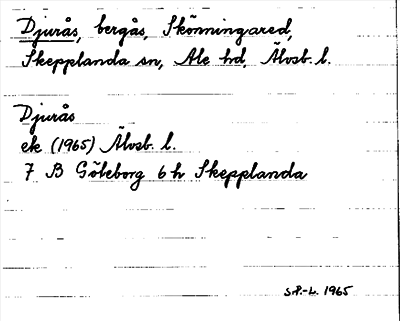 Djurås, bergås, Skönningared,
Skepplanda sn, Ale hd, Älvsb. l.
Djurås
ek (1965) Älvsb. l.
7 B Göteborg 6 h Skepplanda
S.P.-L. 1965